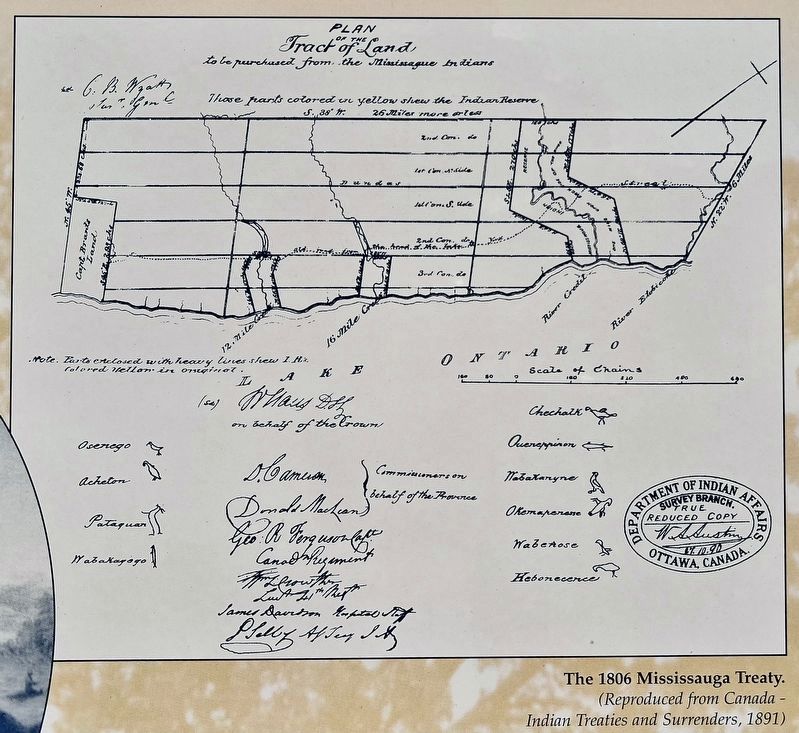 PLAN
OF THE
Tract of Land
to be purchased from the Mississague Indians
C. B. Wyatt
Sur. Genl.
Those parts colored in yellow shew the Indian Reserve
S. 38° W. 26 Miles more or less
2nd Con. do
1st Con. N. Side
Dundas Street
1st Con. S. Side
2nd Con. do
3rd Con. do
Capt. Brants
Land.
RESERVE
York
6 Miles
12 Mile Creek
16 Mile Creek
River Credit
River Etobicoke
Note. Parts enclosed with heavy lines shew I. Rs.
Colored Yellow in original.
LAKE ONTARIO
Scale of Chains
160 80 0 160 320 480 640
(sd)
W Claus D S G
on behalf of the Crown
D. Cameron
Donald Maclean
Commissioners on
behalf of the Province
Geo. R Ferguson Capt
Canadn Regiment
Wm L Crowther
Lieut 41st Regt
James Davidson Hospital Staff
P Selby
Osenego
Acheton
Pataquan
Wabakagego
Chechalk
Oueneppinon
Wabakanyne
Okemapenesse
Wabenose
Hebonecence
DEPARTMENT OF INDIAN AFFAIRS
SURVEY BRANCH.
TRUE
REDUCED COPY
W. A. Austin
OTTAWA, CANADA.
The 1806 Mississauga Treaty.
(Reproduced from Canada -
Indian Treaties and Surrenders, 1891)